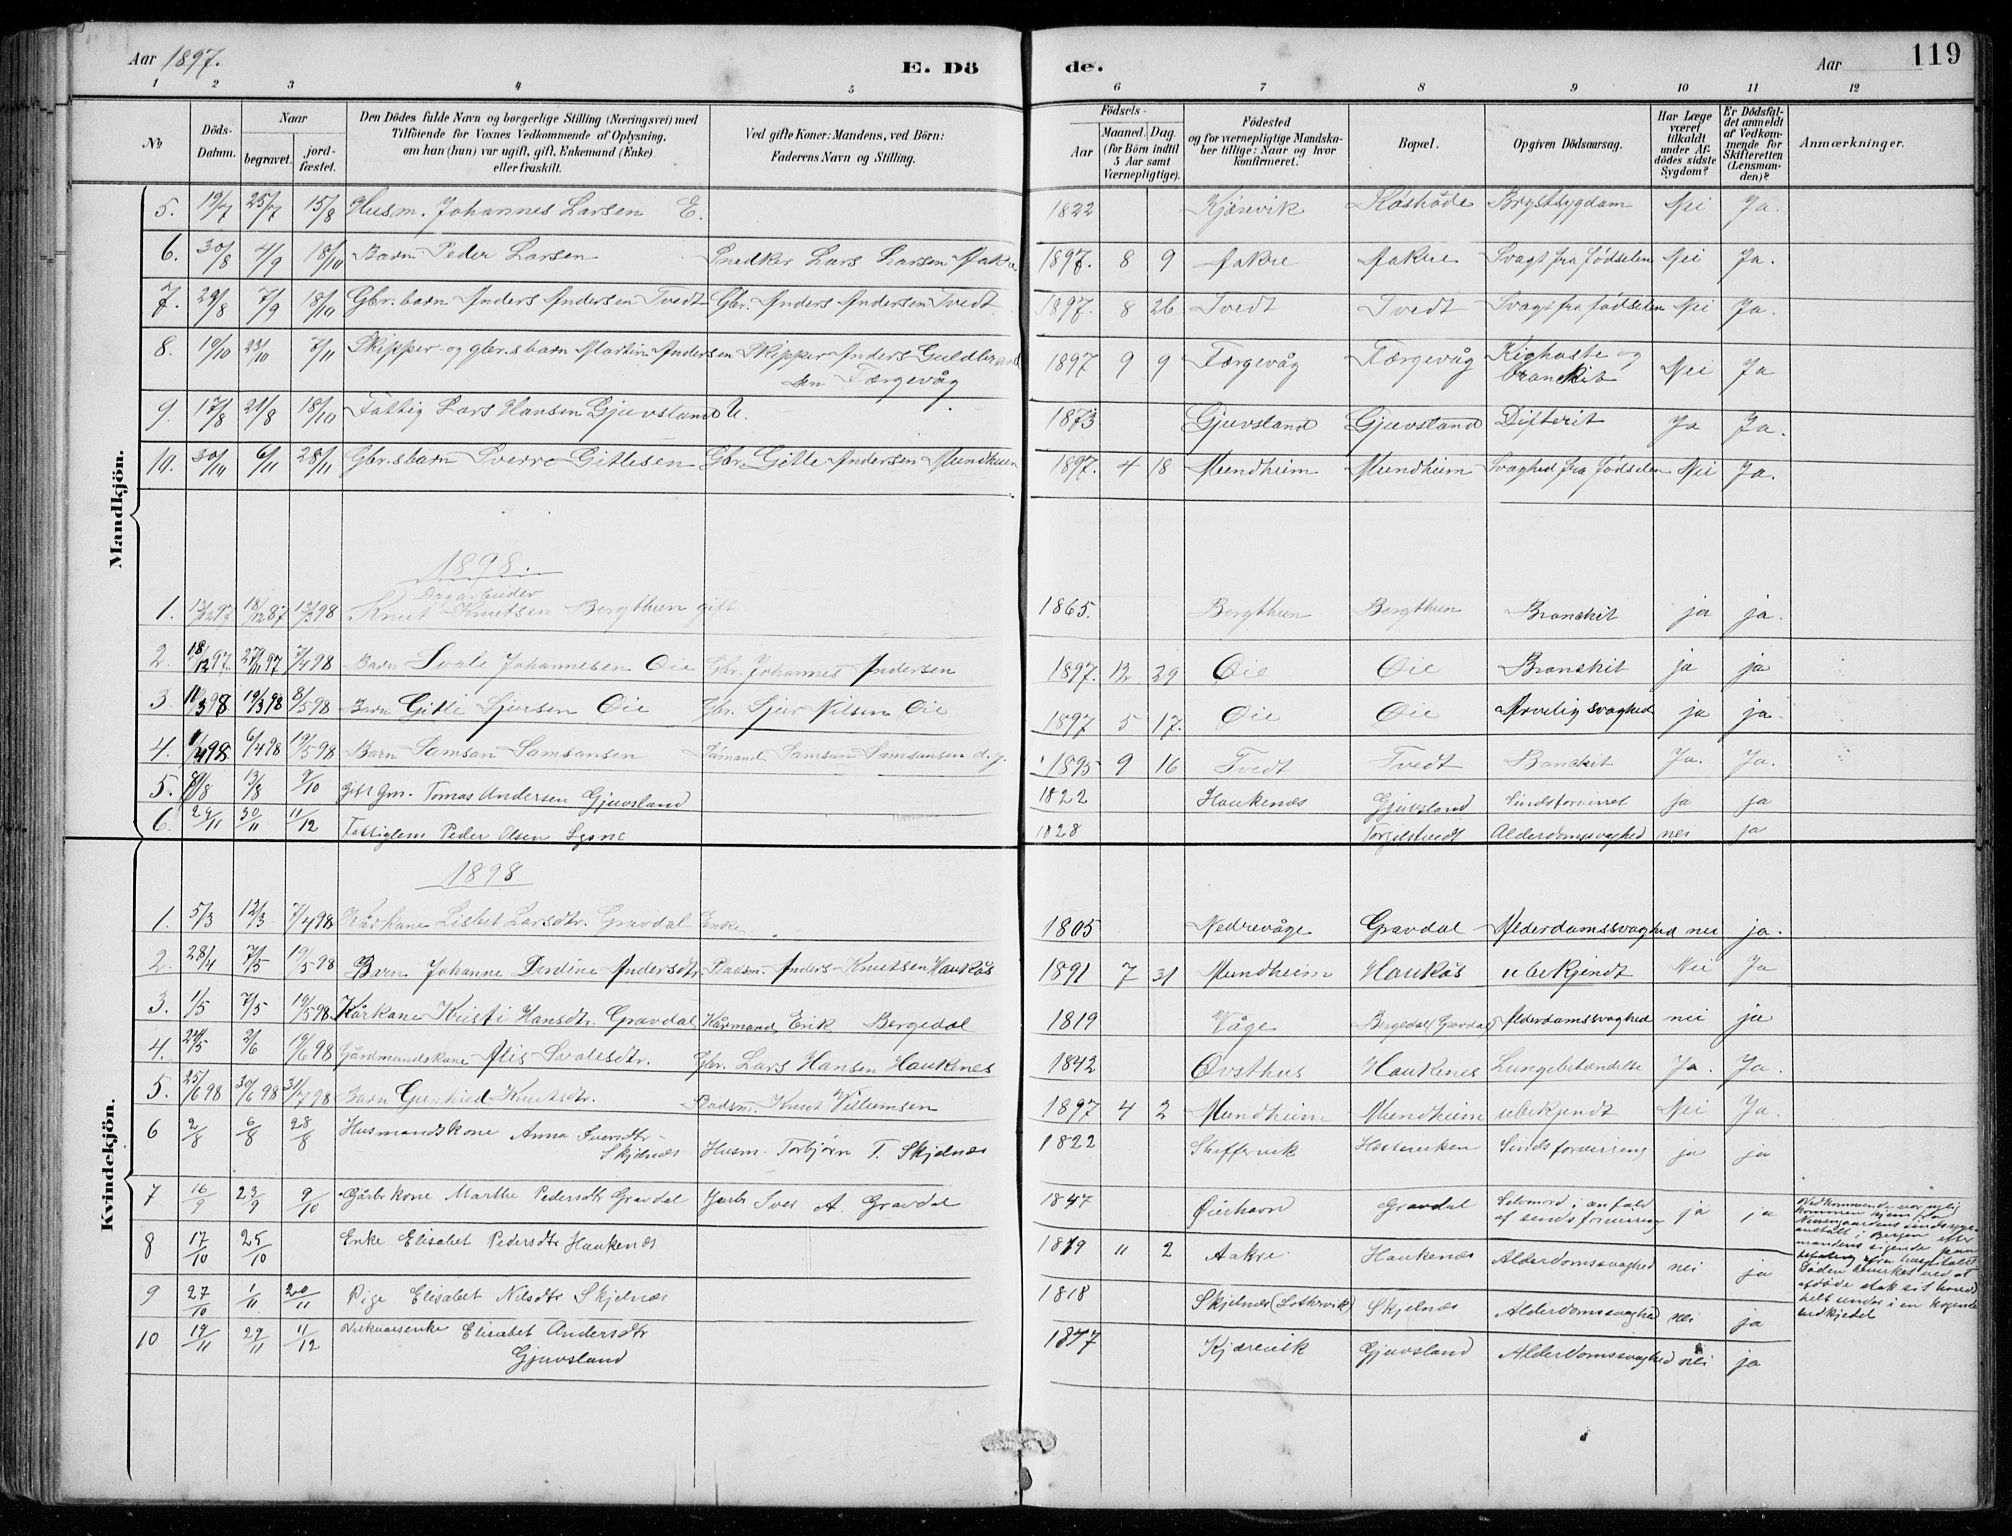 Aar 1897.
E. Dö
de.
Aar
119
1 2 3 4 5 6 7 8 9 10 11 12
№
Döds-Datum.
Naar
begravet.
jord-fæstet.
Den Dödes fulde Navn og borgerlige Stilling (Næringsvei) med
Tilföiende for Voxnes Vedkommende af Oplysning,
om han (hun) var ugift, gift, Enkemand (Enke)
eller fraskilt.
Ved gifte Koner: Mandens, ved Börn:
Faderens Navn og Stilling.
Födsels-
Aar
Maaned. Dag.
(for Börn indtil
5 Aar samt
Værnepligtige).
Födested
og for værnepligtige Mandska-
ber tillige: Naar og hvor
konfirmeret.
Bopæl.
Opgiven Dödsaarsag.
Har Læge
været
tilkaldt
under Af-
dödes sidste
Sygdom?
Er Dödsfal-
det anmeldt
af Vedkom-
mende for
Skifteretten
(Lensman-
den)?
Anmærkninger.
Mandkjön.
5. 19/7 25/7 15/8 Husm. Johannes Larsen E. 1822 Kjærevik Brystsygdom Nei Ja.
6. 30/8 4/9 18/10 Barn Peder Larsen Snedker Lars Larsen Aakre 1897. 8 9 Aakre Aakre Svagt fra fødselen Nei Ja.
7. 29/8 7/9 18/10 Gbr. barn Anders Andersen Tvedt Gbr. Anders Andersen Tvedt. 1897. 8 26 Tvedt Tvedt Svagt fra fødselen Nei Ja.
8. 19/10 23/10 7/11 Skipper og gbr.s barn Martin Andersen Skipper Anders Guldbrand
sen Færgevåg 1897 9 9 Færgevåg Færgevåg Kighoste og
bronkit Nei Ja
9. 17/8 21/8 18/10 Fattig Lars Hansen Gjuvsland U. 1873 Gjuvsland Gjuvsland Difterit Ja Ja.
10. 30/10 6/11 28/11 Gbr.s barn Sverre Gitlesen Gbr. Gitle Andersen Mundheim 1897. 4 18 Mundheim Mundheim Svaghed fra fødselen Nei Ja.
1898.
Dagarbeider
1. 13/12 97 18/12 87 13/3 98 Knut Knutsen Bergthun gift 1865. Bergthun Bergthun Bronkit ja ja.
2. 18/12 97. 27/11 97 7/4 98 Barn Svale Johannesen Øie Gbr. Johannes Andersen 1897. 12 29 Øie Øie Bronkit ja ja
3. 11/3 98 19/3 98 8/5 98 Barn Gitle Sjursen Øie Gbr. Sjur Nilsen Øie 1897 5 17. Øie Øie Arvelig svaghed ja ja.
4. 1/4 98 6/4 98 19/5 98 Barn Samson Samsonsen Sømand Samson Samsonsen d.y. 1895 9 16 Tvedt Tvedt Bronkit Ja. Ja.
5. 13/8 9/10 gift gm. Tomas Andersen Gjuvsland 1822 Haukenæs Gjuvsland Sindsforvirret ja ja
6. 24/11 30/11 11/12 Fattiglem Peder Olsen 1828 Alderdomssvaghed nei ja
Kvindekjön.
1898
1. 5/3 12/3 7/4 98 Kårkone Lisbet Larsdtr. Gravdal Enke. 1805 Nedrevåge Gravdal Alderdomssvaghed nei ja.
2. 28/4 7/5 19/5 98 Barn Johanne Andersdtr. Pladsm. Anders Knutsen Haukås 1891 7 31 Mundheim Haukås ubekjendt Nei Ja
3. 1/5 7/5 19/5 98 Kårkone Kristi Hansdtr. Gravdal Kårmand Erik Bergedal 1819 Våge Bergedal (Gravdal) Alderdomssvaghed nei ja
4. 24/5 2/6 19/6 98 Gårdmandskone Alis Svalesdtr. Gbr. Lars Hansen Haukenes 1842 Øvsthus Haukenes Lungebetændelse Ja. Ja.
5. 25/6 98 30/6 98 31/7 98 Barn Gunhild Knutsdtr. Pladsm. Knut Villumsen 1897 4 2 Mundheim Mundheim ubekjendt Nei Ja.
6 2/8 6/8 28/8 Husmandskone Anna Iversdtr.
Skjelnæs Husm. Torbjørn T. Skjelnæs 1822 Sindsforvirring ja ja
7 16/9 23/9 9/10 Gårbr kone Marthe Pedersdtr Gravdal Gårbr Iver A. Gravdal 1847 Øierhavn Gravdal Selvmord i anfald
af sindsforvirring ja ja Vedkommende var nylig
kommen hjem fra
Neevengaardens sindssyge
anstalt i Bergen efter
mandens sigende paa
befaling fra hospitalet.
Døden bevirkes ved at
afdøde stak sit hoved
helt under i en kogende
bedkjedel
8 17/10 25/10 Enke Elisabet Pedersdtr Haukenæs 1819 11 2 Aakre Haukenæs Alderdomssvaghed nei ja
9 27/10 1/11 20/11 Pige Elisabet Nilsdtr Skjelnæs 1818 Skjelnæs Skjelnæs Alderdomssvaghed nei ja
10 19/11 29/11 11/12 Elisabet Andersdtr
Gjuvsland Kjærevik Gjuvsland Alderdomssvaghed nei ja